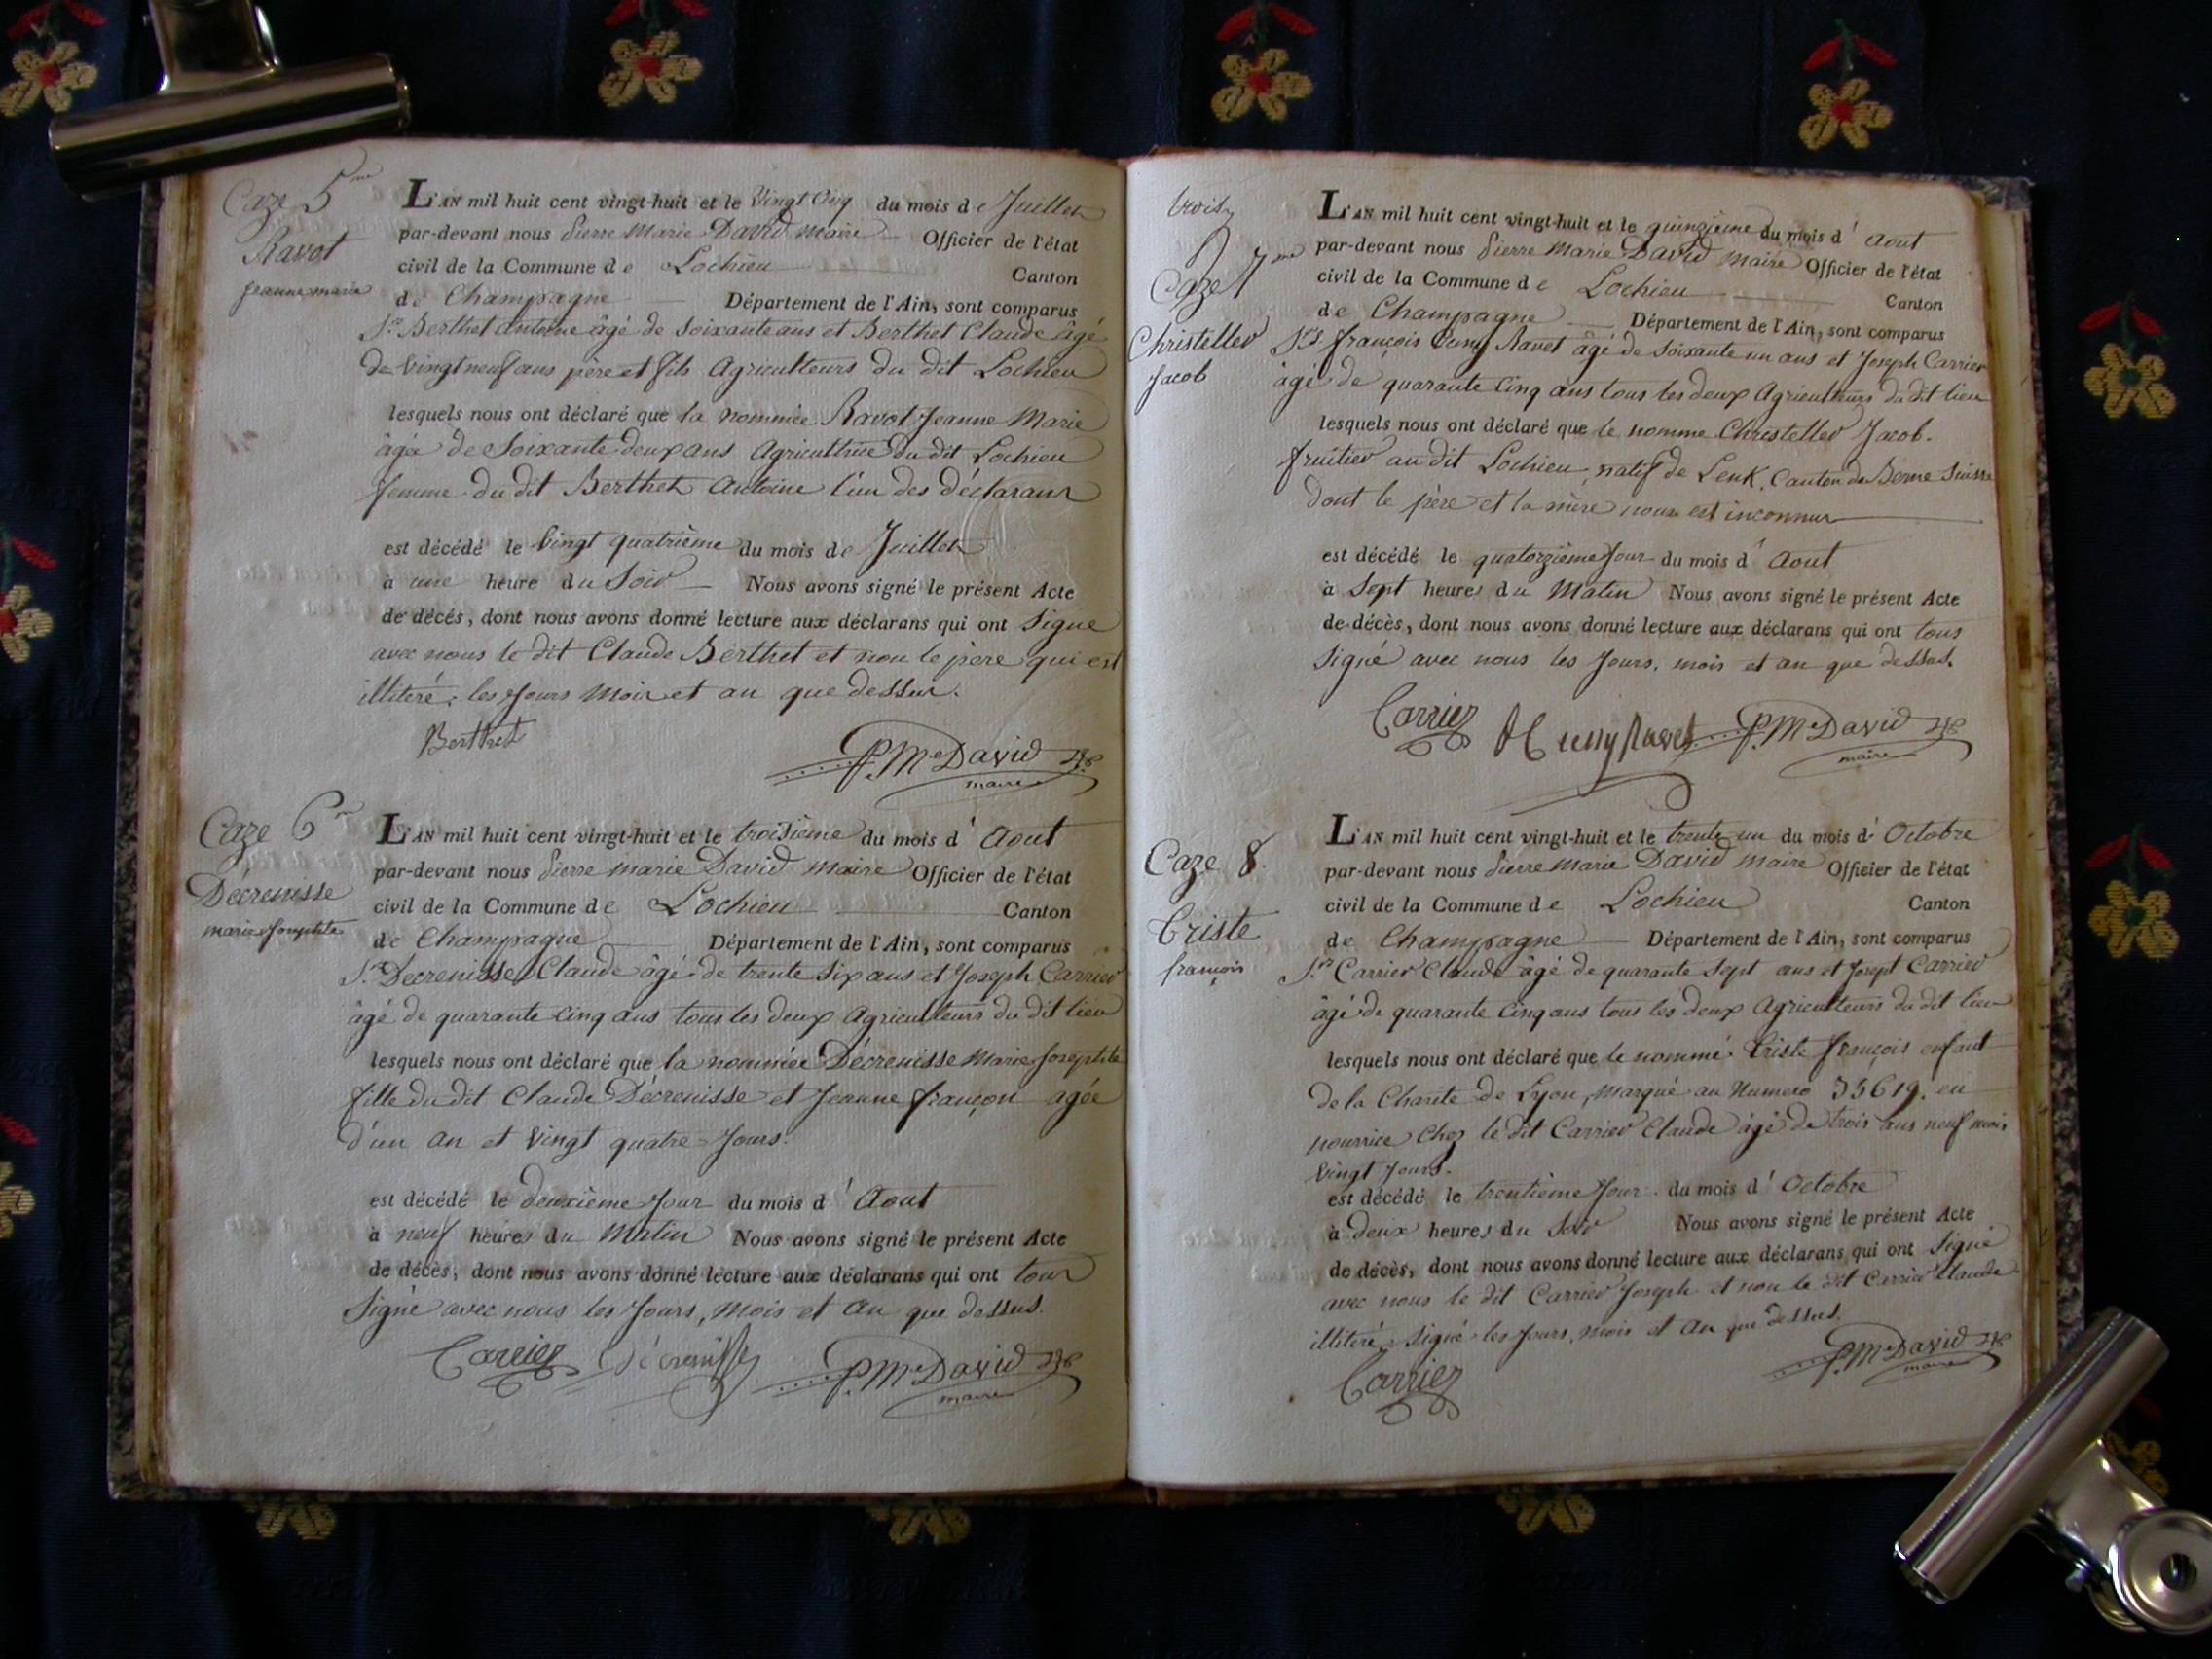 Caze 5me
Ravot
jeanne marie
L'AN mil huit cent vingt-huit et le Vingt Cinq du mois de Juillet
par-devant nous Pierre Marie David maire Officier de l'état
civil de la Commune de Lochieu Canton
de Champagne Département de l'Ain, sont comparus
Sr. Berthet Antoine âgé de soixante ans et Berthet Claude âgé
de vingt neuf ans père et fils Agriculteurs du dit Lochieu
lesquels nous ont déclaré que la nommée Ravot Jeanne Marie
âgée de Soixante deux ans Agricultrice du dit Lochieu
femme du dit Berthet Antoine l'un des déclarans
est décédé le vingt quatrième du mois de Juillet
à une heure du Soir Nous avons signé le présent Acte
de décès, dont nous avons donné lecture aux déclarans qui ont Signé
avec nous le dit Claude Berthet et non le père qui est
illiteré; les Jours Mois et an que dessus.
Berthet
P. Me David
maire
Caze 6me
Décrenisse
marie Josephte
L'AN mil huit cent vingt-huit et le troisième du mois d'Aout
par-devant nous Pierre marie David maire Officier de l'état
civil de la Commune de Lochieu Canton
de Champagne Département de l'Ain, sont comparus
Sr. Décrenisse Claude âgé de trente six ans et Joseph Carrier
âgé de quarante cinq ans tous les deux Agriculteurs du dit lieu
lesquels nous ont déclaré que la nommée Décrenisse Marie Josephte
fille du dit Claude Décrenisse et Jeanne françon agée
d'un an et vingt quatre Jours.
est décédé le deuxième Jour du mois d'Aout
à neuf heures du Matin Nous avons signé le présent Acte
de décès, dont nous avons donné lecture aux déclarans qui ont tous
Signé avec nous les Jours, Mois et an que dessus.
Carrier Décrenisse P. Me David
maire
trois
Caze 7me
Christeller
Jacob
L'AN mil huit cent vingt-huit et le quinzième du mois d'Aout
par-devant nous Pierre Marie David maire Officier de l'état
civil de la Commune de Lochieu Canton
de Champagne Département de l'Ain, sont comparus
Srs. françois Cuny Ravet âgé de soixante un ans et Joseph Carrier
âgé de quarante cinq ans tous les deux Agriculteurs du dit lieu
lesquels nous ont déclaré que le nommé Christeller Jacob.
fruitier au dit Lochieu, natif de Lenk, Canton de Berne Suisse
dont le père et la mère nous est inconnus
est décédé le quatorzième Jour du mois d'Aout
à Sept heures du Matin Nous avons signé le présent Acte
de décès, dont nous avons donné lecture aux déclarans qui ont tous
Signé avec nous les Jours, mois et an que dessus.
Carrier Cuny Ravet P. Me David
maire
Caze 8.
Triste
françois
L'AN mil huit cent vingt-huit et le trente un du mois d'Octobre
par-devant nous Pierre Marie David maire Officier de l'état
civil de la Commune de Lochieu Canton
de Champagne Département de l'Ain, sont comparus
Srs. Carrier Claude âgé de quarante Sept ans et Josept Carrier
âgé de quarante Cinq ans tous les deux Agriculteurs du dit lieu
lesquels nous ont déclaré que le nommé Triste françois enfant
de la Charité de Lyon, Marqué au Numero 35619. en
nourrice Chez le dit Carrier Claude âgé de trois ans neuf mois
vingt Jours.
est décédé le trentième Jour du mois d'Octobre
à deux heures du Soir Nous avons signé le présent Acte
de décès, dont nous avons donné lecture aux déclarans qui ont Signé
avec nous le dit Carrier Joseph et non le dit Carrier Claude
illiteré Signé les Jours, mois et An que dessus.
Carrier P. Me David
maire